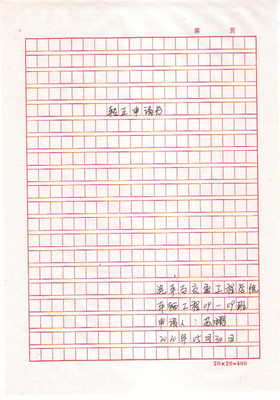 第 页
转正申请书
汽车与交通工程学院
车辆工程09-09班
申请人:
2010年05月30日
20×20=400